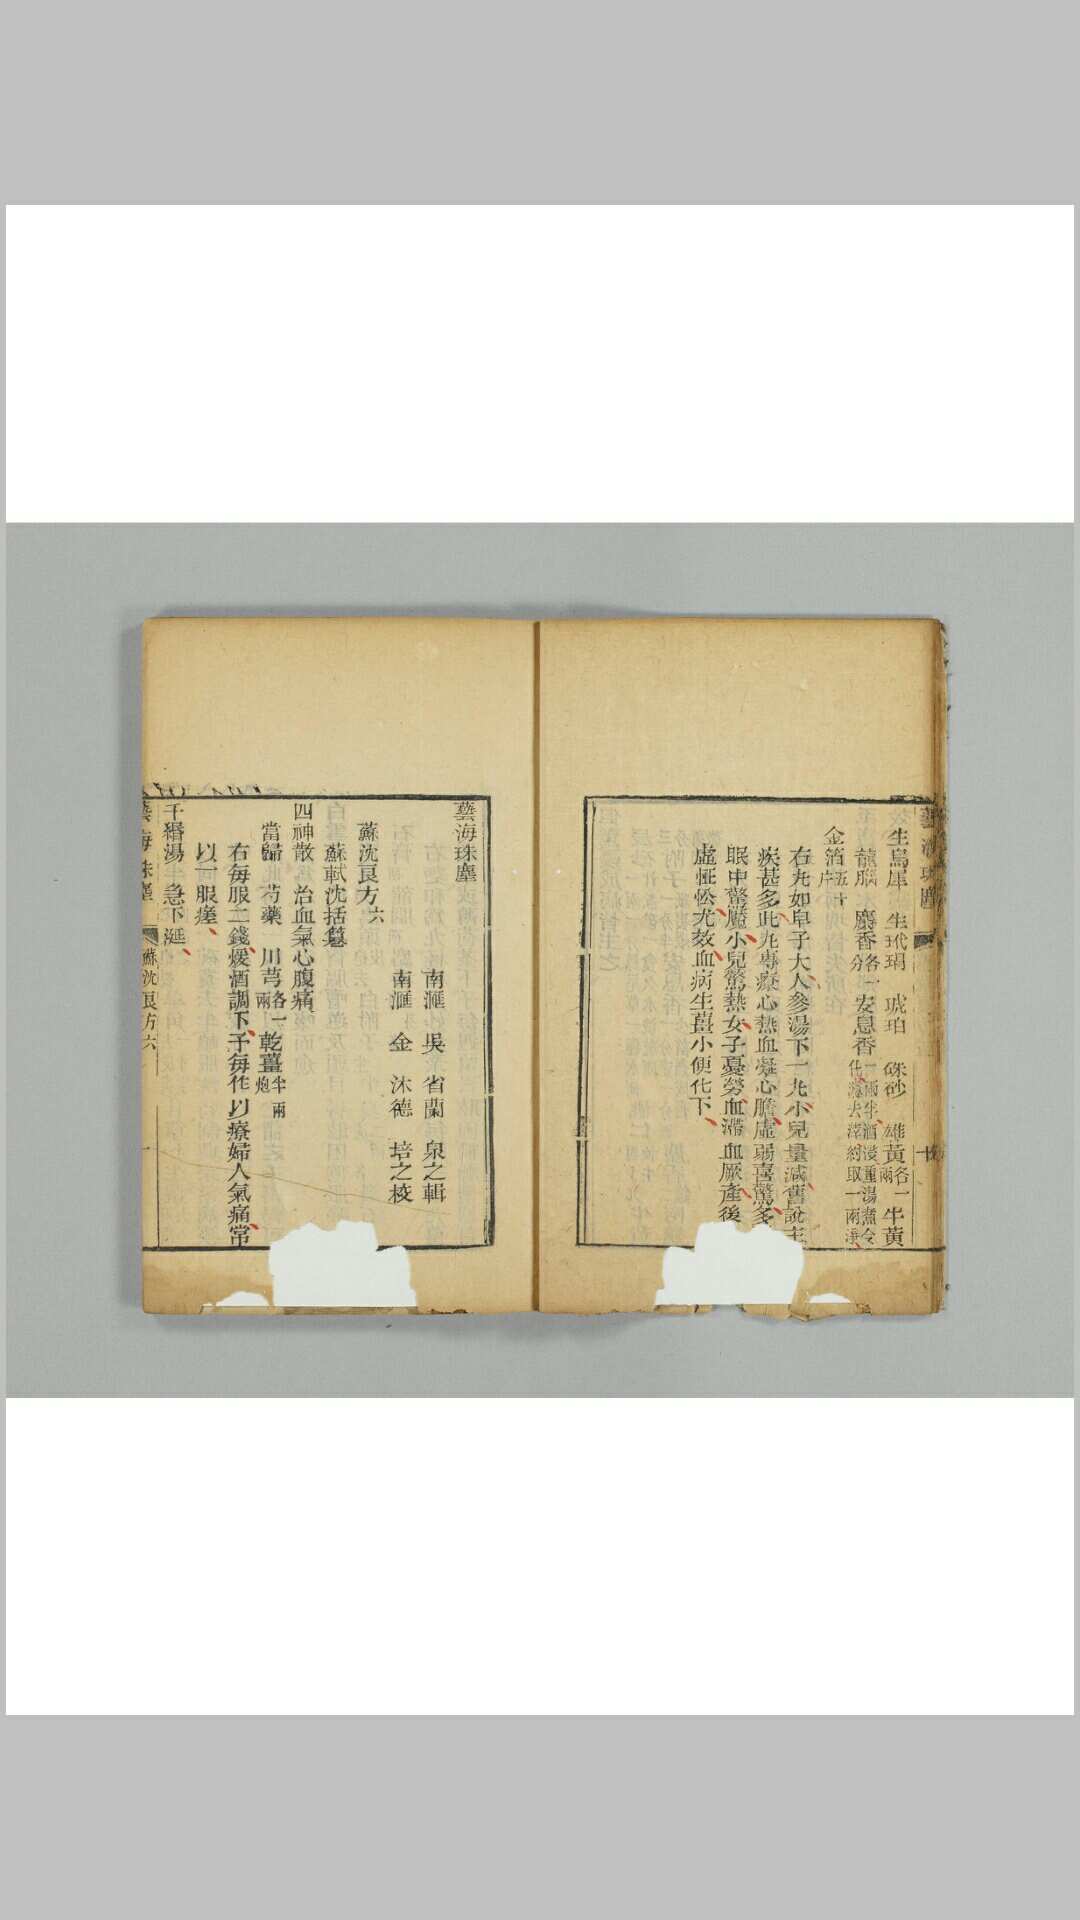 生烏犀　生玳瑁　琥珀　硃砂　雄黃各一兩　牛黃
龍腦　麝香各一分　安息香一兩半酒浸重湯煮令化濾去滓約取一兩淨
金箔五十片
右丸如皁子大人參湯下一丸小兒量減舊說主
疾甚多此丸專療心熱血凝心膽虛弱喜驚多
眠中驚魘小兒驚熱女子憂勞血滯血厥產後
虛怔忪尤效血病生薑小便化下
藝海珠塵
南滙　吳省蘭　泉之輯
南滙　金沐德　培之校
蘇沈良方六
蘇軾沈括纂
四神散　治血氣心腹痛
當歸　芍藥　川芎各一兩　乾薑半兩炮
右每服二錢煖酒調下予每作以療婦人氣痛常
以一服瘥
千緡湯　急下涎
藝海珠塵
蘇沈良方六
一